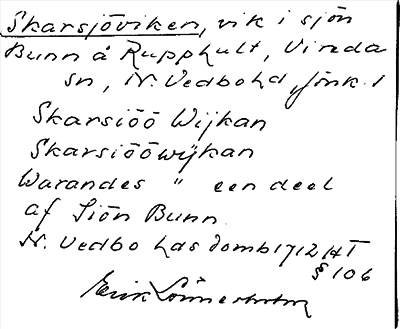 Skarsjöviken, vik i sjön
Bunn å Rupphult, Vireda
sn, N. Vedbo hd, Jönk. l
Skarsiöö Wijkan
Skarsiööwijkan
Warandes " een deel
af Siön Bunn
N. Vedbo häs domb 1712 HT
§ 106
Erik